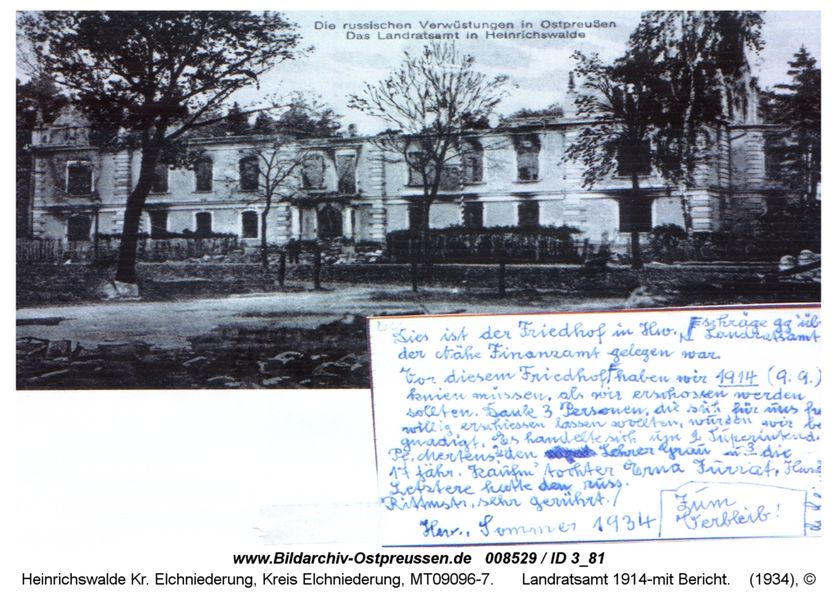 Die russischen Verwüstungen in Ostpreußen
Das Landratsamt in Heinrichswalde
Dies ist der Friedhof in Hw., schräge gg'üb
der Nähe Finanzamt gelegen war. Landratsamt
Vor diesem Friedhof haben wir 1914 (9.9.)
knien müssen, als wir erschossen werden
sollten. Dank 3 Personen, die sich für uns fr
willig erschiessen lassen wollten, wurden wir be
gnadigt. Es handelte sich um 1. Superintend.
Pf. Mertens, 2 den Lehrer Grau u. 3 die
17 jähr. Kaufm' tochter Erna Jurrat, Hw
Letztere hatte den russ.
Rittmstr. sehr gerührt!
Hw., Sommer 1934
Zum
Verbleib!
www.Bildarchiv-Ostpreussen.de 008529 / ID 3_81
Heinrichswalde Kr. Elchniederung, Kreis Elchniederung, MT09096-7. Landratsamt 1914-mit Bericht. (1934), ©